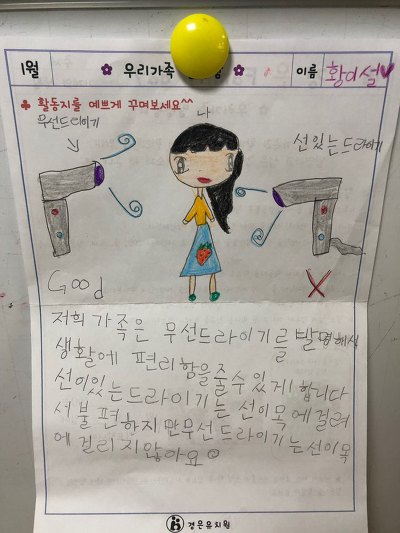 1월
우리가족
이름 황이설
활동지를 예쁘게 꾸며보세요^^
무선드라이기
나
선있는드라이기
Good
X
저희 가족은 무선드라이기를 발명해서
생활에 편리함을줄수있게 합니다
선이있는드라이기는 선이목에걸려
서불편하지만무선드라이기는선이목
에걸리지않아요
경문유치원